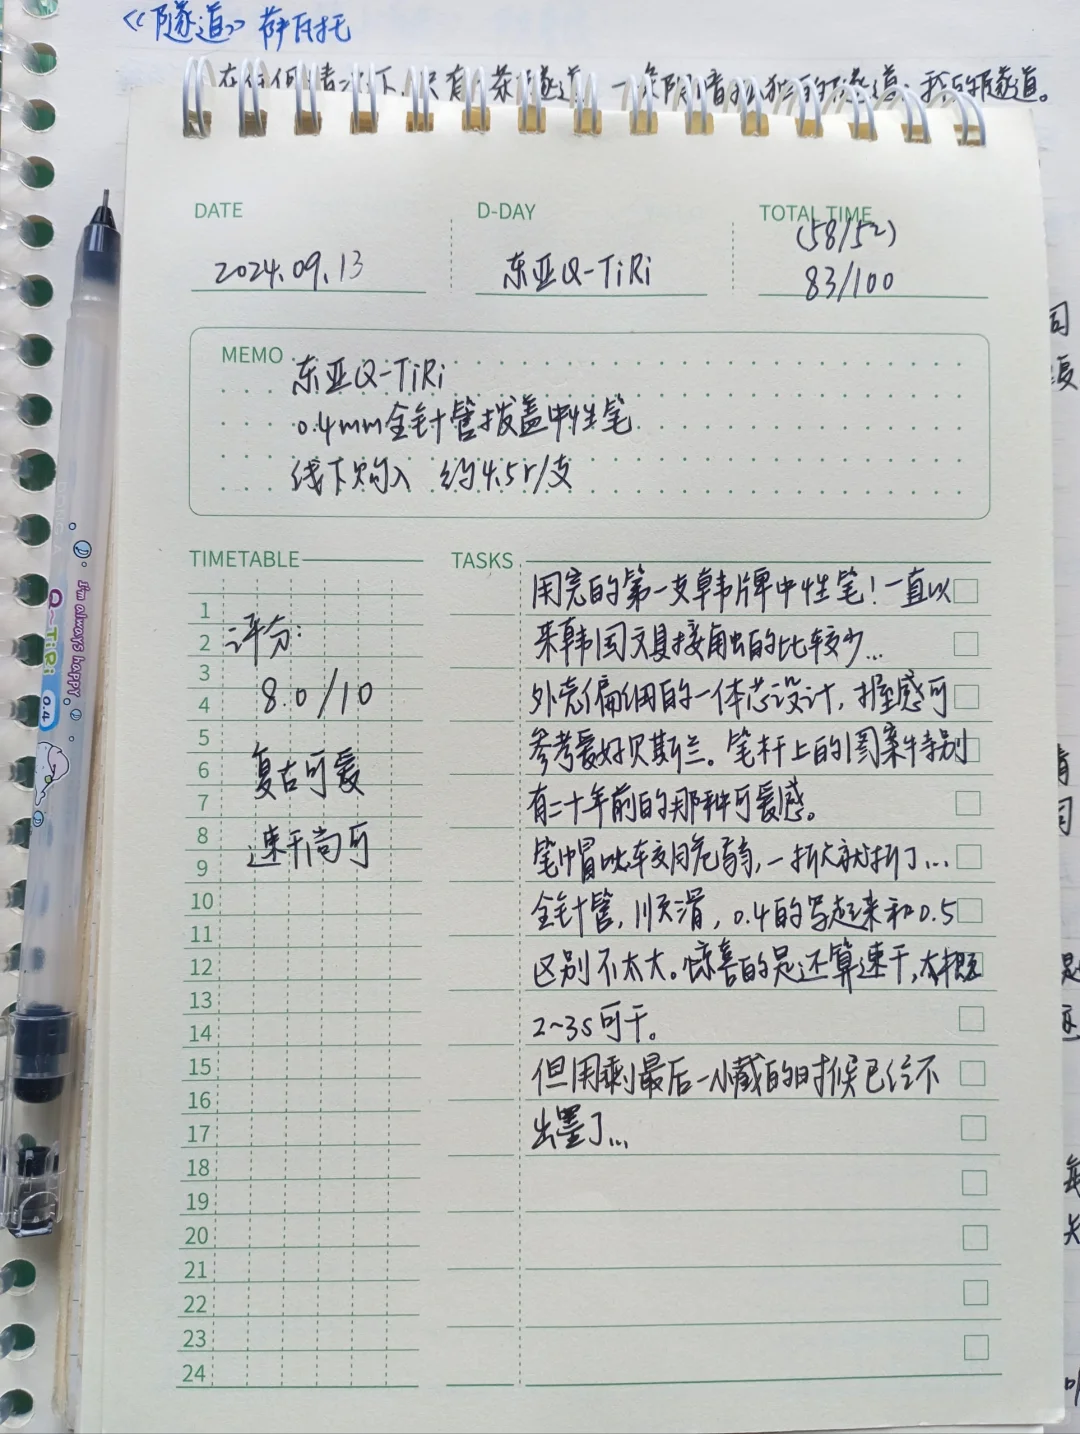 《隧道》萨百托
在任何情况下,只有一条隧道,一条阴暗孤独的隧道:我的隧道。
DATE
D-DAY
TOTAL TIME
(58/52)
2024.09.13
东亚Q-TiRi
83/100
MEMO
东亚Q-TiRi
0.4mm全针管拔盖中性笔
线下购入 约4.5r/支
TIMETABLE
TASKS
用完的第一支韩牌中性笔!一直以
来韩国文具接触的比较少...
外壳偏细的一体芯设计,握感可
参考爱好贝斯兰。笔杆上的图案特别
有二十年前的那种可爱感。
笔帽比较危弱,一折大就折了...
全针管,顺滑,0.4的写起来和0.5
区别不太大。惊喜的是还算速干,大概
2~3s可干。
但用剩最后一小截的时候已经不
出墨了...
评分:
8.0/10
复古可爱
速干尚可
1
2
3
4
5
6
7
8
9
10
11
12
13
14
15
16
17
18
19
20
21
22
23
24
I'm always happy
Q~TiRi 0.4